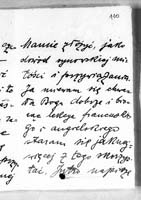 110
Mamie złożyć, jako
dowód synowskiej mi-
łości i przywiązania.
Ja uczę się chwa-
ła Bogu dobrze i bio-
rę lekcye francuskie-
go i angielskiego
staram się jaknaj-
więcej z tego skorzys-
tać. Jutro napiszę